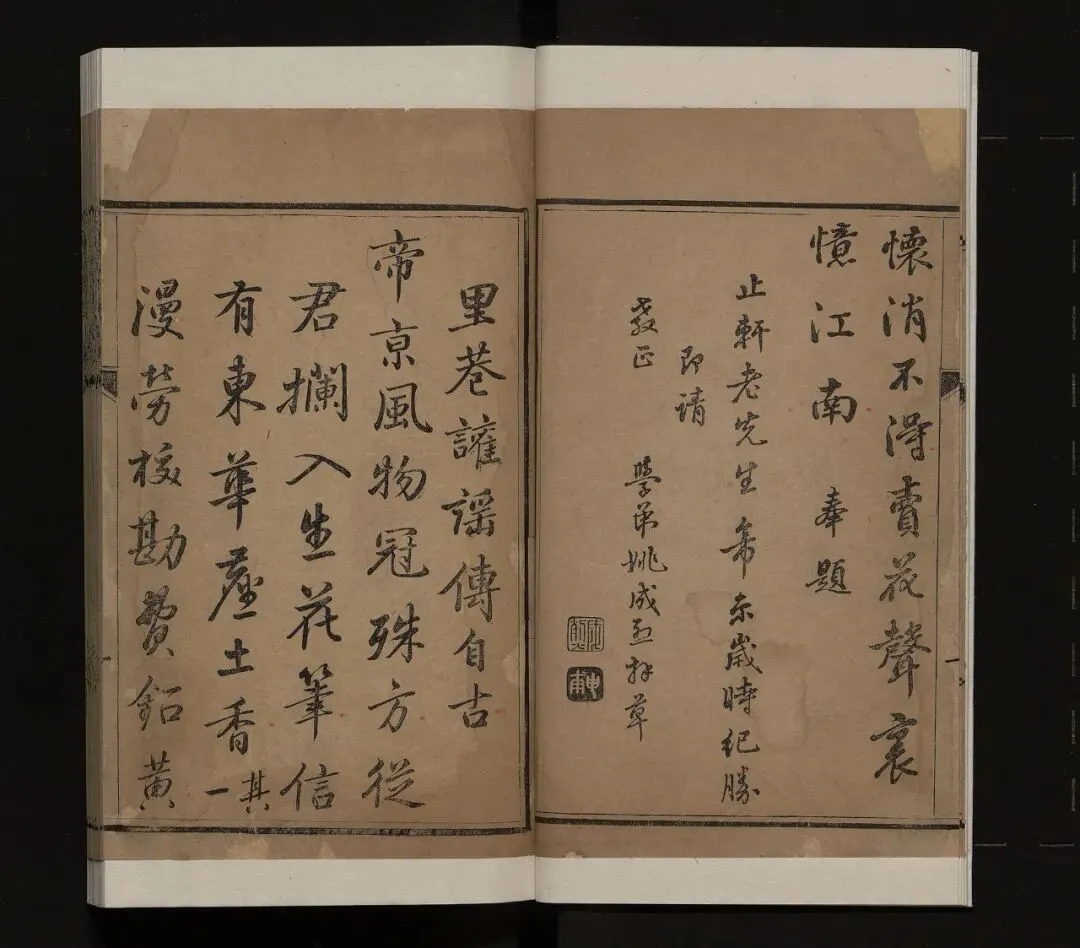 懷消不得賣花聲裏
憶江南 奉題
止軒老先生帝京歲時紀勝
即請
教正 學弟姚成烈拜草
里巷讙謡傳自古
帝京風物冠殊方從
君攔入生花筆信
有東華塵土香其一
漫勞校勘費鉛黃